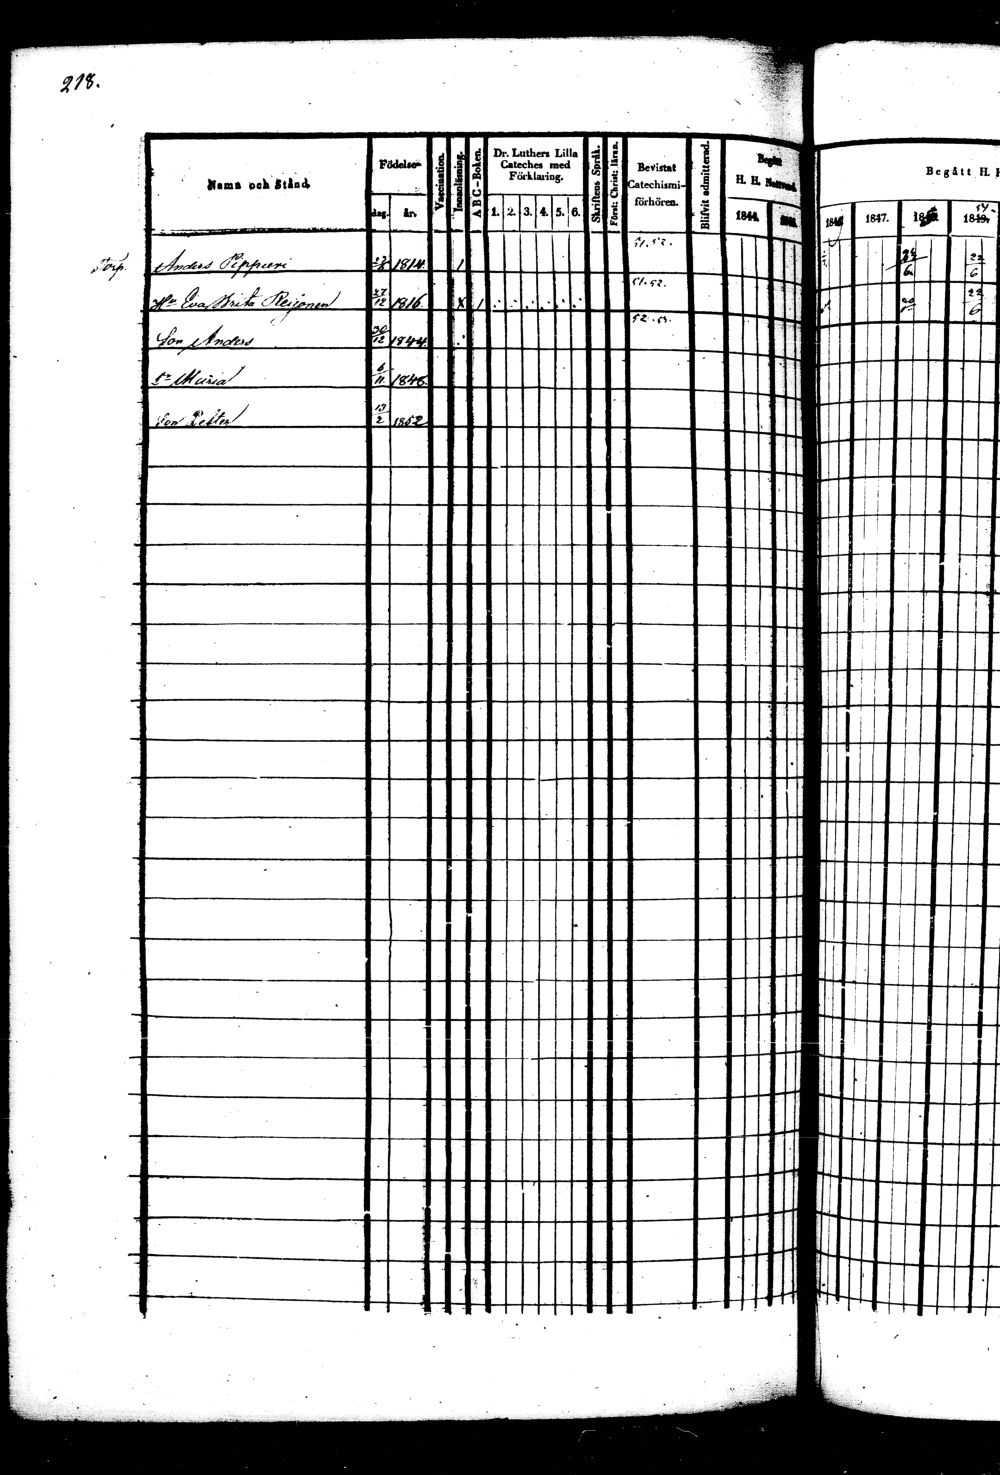 218.
Namn och Stånd.
Födelse-
dag. år.
Vaccination.
Innanläsning.
ABC-Boken.
Dr. Luthers Lilla
Cateches med
Förklaring.
1. 2. 3. 4. 5. 6.
Skriftens Språk.
Först: Christ: läran.
Bevistat
Catechismi-
förhören.
Blifvit admitterad.
Begått
H. H. Nattvard.
1844.
Begått H. H
1846. 1847. 1849.
54.
Torp. Anders Pippuri 1814 1 51.52. 22/6
Hu Eva Brita Reijonen 27/12 1816 X 1 51.52. 22/6
Son Anders 30/12 1844 52.53.
Dr Maria 6/11 1848
Son Petter 13/2 1852